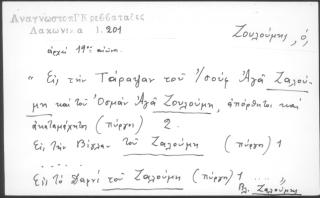 Αναγνωστοπ Γκρεββατάζες
Λακωνικα 1.201
Ζουλούμης, ό,
αρχές 19ου αιώνα.
"Εις την Τάραψαν τοῦ Υσούφ Ἀγᾶ Ζαλού-
μη καὶ τοῦ Ὀσμάν Ἀγᾶ Ζουλούμη, ἀπόρθητοι καὶ
ἀκαταμάχητοι (πύργοι) 2.
Εἰς τὴν Βίγλαν τοῦ Ζαλούμη (πύργοι) 1
......
Εἰς τὸ Δαφνί τοῦ Ζαλούμη (πύργοι) 1 .... "
Βλ. Ζαλούμης